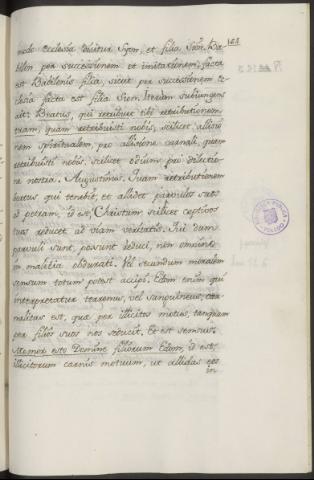 modo Ecclesia dicitur Syon, et filia Sion: Ba-
bilon per successionem et imitationem, facta
est Babilonis filia, sicut per successionem Ec-
clesia facta est filia Sion. Iterum subiungens
ait: Beatus, qui retribuet tibi retributionem
tuam, quam retribuisti nobis, scilicet allisio-
nem spiritualem, pro allisione carnali, quam
retribuisti nobis, scilicet odium pro dilectio-
ne nostra. Augustinus. Tuam retributionem
beatus qui tenebit, et allidet parvulos suos
ad petram, id est, Christum scilicet captivos
tuos reducet ad viam veritatis. Sic dum
parvuli sunt, possunt deduci, non omnino
in malitia obdurati. Vel secundum moralem
sensum totum potest accipi. Edom enim qui
interpretatur terrenus, vel sanguineus, car-
nalitas est, quæ per illicitos motus, tanquam
per filios suos nos seducit. Et est sensus:
Memor esto Domine filiorum Edom, id est,
illicitorum carnis motuum, ut allidas eos
in